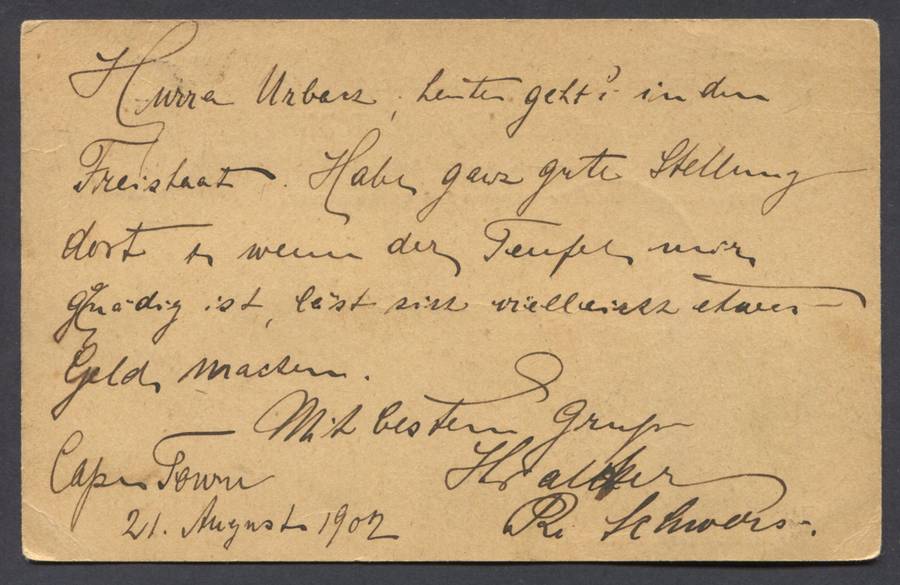 Hurra Urban, heute geht's in den
Freistaat. Habe ganz gute Stellung
dort & wenn der Teufel mir
gnädig ist, läst sich vielleicht etwas
Geld machen.
Mit bestem Gruß
Walther
Cape Town
21. August 1902